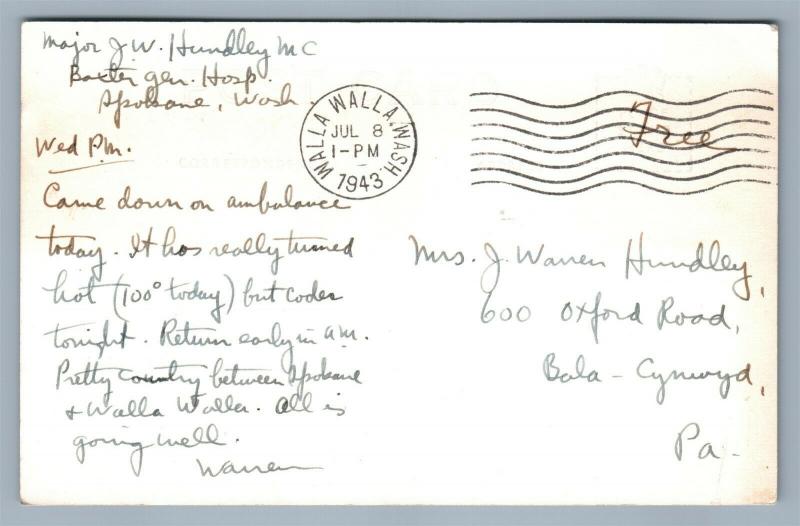 Major J. W. Hundley MC
Baxter Gen. Hosp.
Spokane, Wash.
WALLA WALLA, WASH.
JUL 8
1-PM
1943
Free
Wed P.M.
Came down on ambulance
today. It has really turned
hot (100° today) but cooler
tonight. Return early in a.m.
Pretty country between Spokane
& Walla Walla. All is
going well.
Warren
Mrs. J. Warren Hundley,
600 Oxford Road,
Bala-Cynwyd,
Pa.